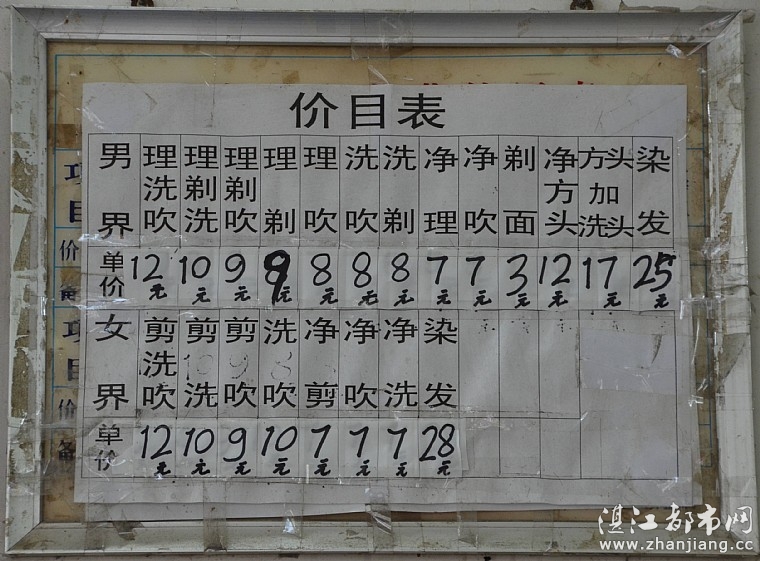 价目表
男界 理洗吹 理剃洗 理剃吹 理剃 理吹 洗吹 洗剃 净理 净吹 剃面 净方头 方头加洗头 染发
单价 12元 10元 9元 9元 8元 8元 8元 7元 7元 3元 12元 17元 25元
女界 剪洗吹 剪洗 剪吹 洗吹 净剪 净吹 净洗 染发
单价 12元 10元 9元 10元 7元 7元 7元 28元
项目
价
项目
价
湛江都市网
www.zhanjiang.cc